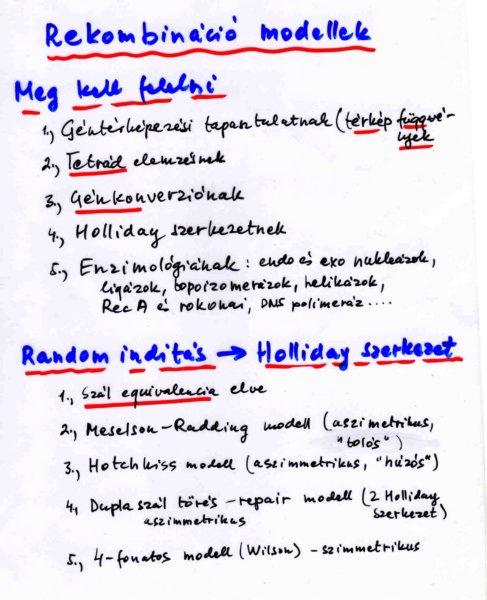 Rekombináció modellek
Meg kell felelni
1., Géntérképezési tapasztalatnak (térkép függvé-
nyek
2., Tetrád elemzésnek
3., Génkonverziónak
4., Holliday szerkezetnek
5., Enzimológiának: endo és exo nukleázok,
ligázok, topoizomerázok, helikázok,
Rec A és rokonai, DNS polimeráz ....
Random indítás → Holliday szerkezet
1., Szál equivalencia elve
2., Meselson-Radding modell (aszimetrikus,
"tolós")
3., Hotchkiss modell (aszimmetrikus, "húzós")
4., Dupla szál törés - repair modell (2 Holliday
aszimmetrikus szerkezet)
5., 4-fonatos modell (Wilson) - szimmetrikus